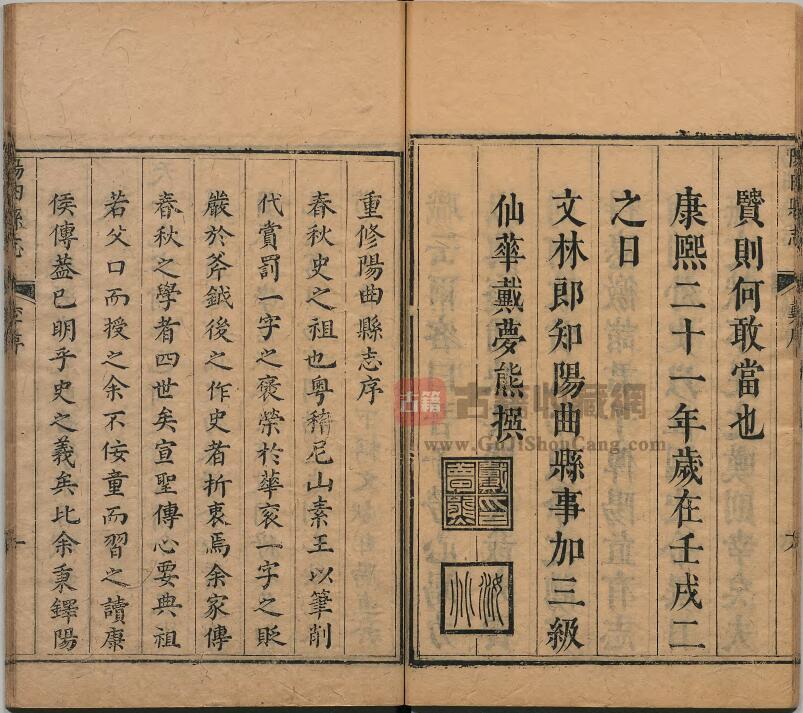 陽曲縣志
覽則何敢當也
康熙二十一年歲在壬戌二
之日
文林郎知陽曲縣事加三級
仙華戴夢熊撰
重修陽曲縣志序
春秋史之祖也粵稽尼山素王以筆削
代賞罰一字之褒榮於華袞一字之貶
嚴於斧鉞後之作史者折衷焉余家傳
春秋之學者四世矣宣聖傳心要典祖
若父口而授之余不佞童而習之讀康
侯傳葢已明乎史之義矣比余秉鐸陽
陽曲縣志
古籍
古籍收藏網
www.GuJiShouCang.com